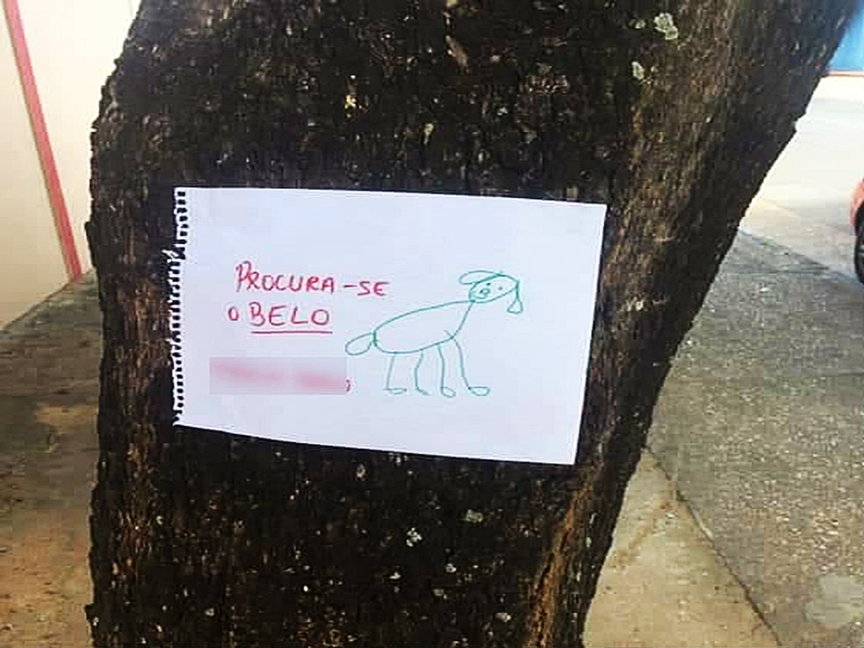 PROCURA-SE
O BELO